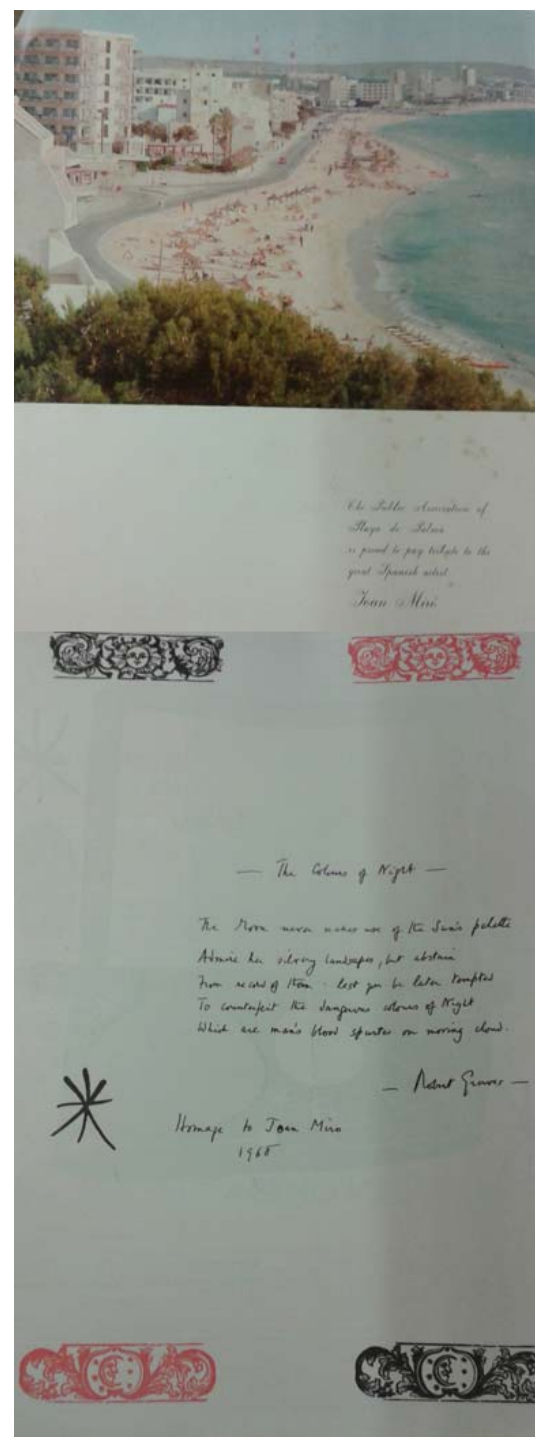 The Public Association of
Playa de Palma
is proud to pay tribute to the
great Spanish artist
Joan Miró
— The Colours of Night —
The Moon never makes use of the Sun's palette
Admire her silvery landscapes, but abstain
From record of them : lest you be later tempted
To counterfeit the dangerous colours of Night
Which are man's blood spurted on moving cloud.
— Robert Graves —
Homage to Joan Miro
1968